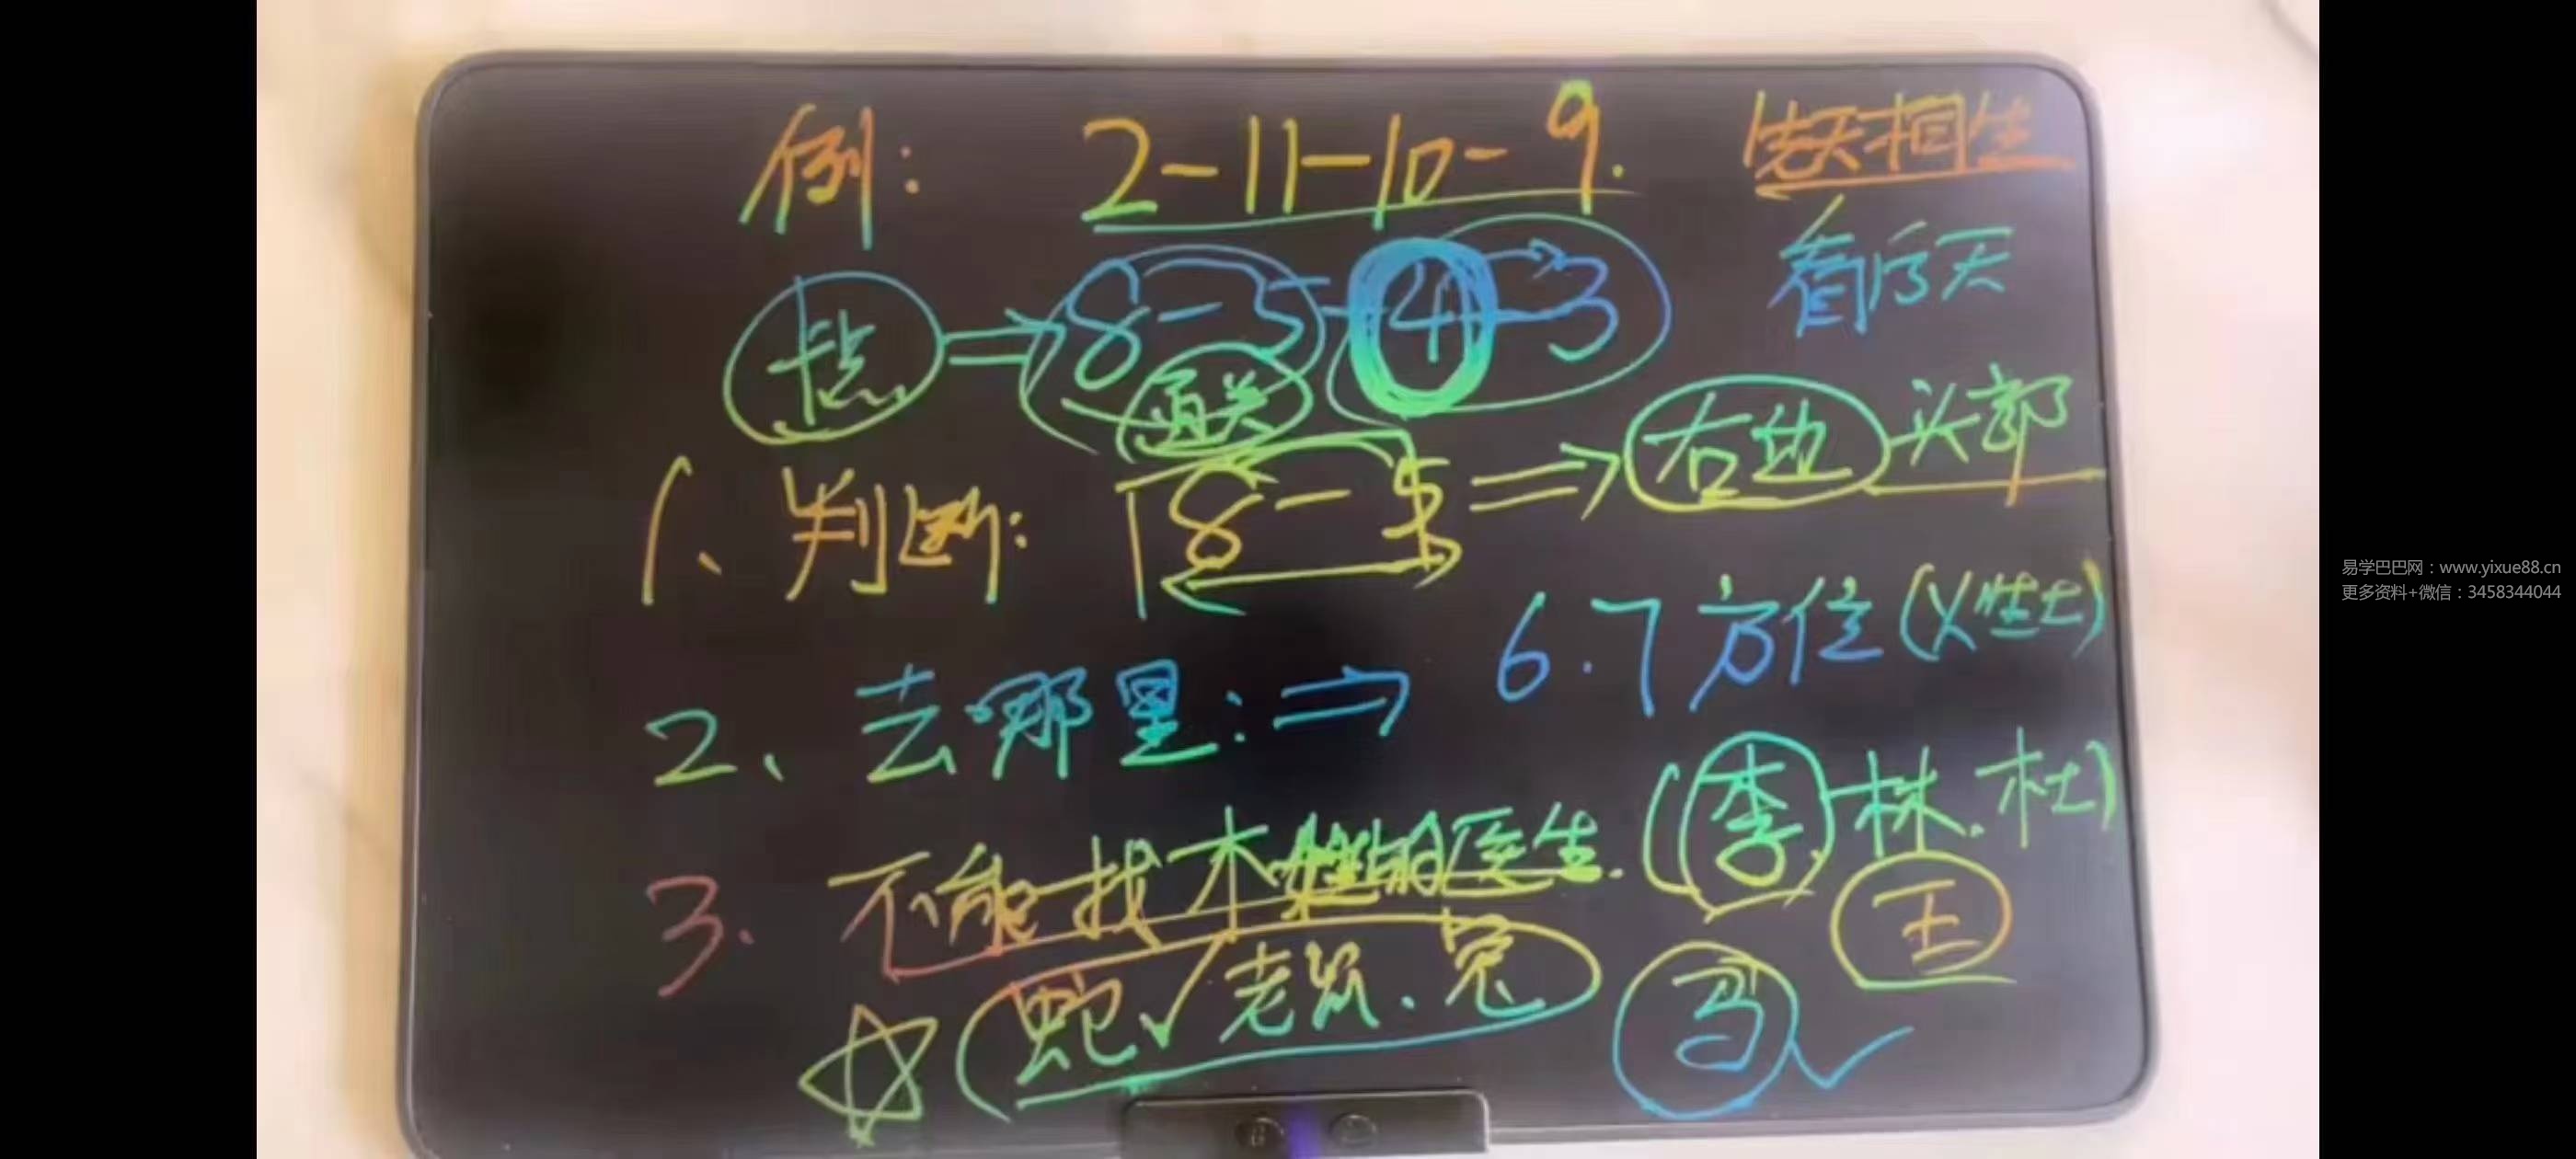 例： 2-11-10-9. 先天相生
看后天
卡点 => 8-5-4-3
通关
1、判断: 8-5 => 右边 头部
2、去哪里: => 6.7方位(义姓士)
3. 不能找木姓的医生. (李 林.杜)
王
☆ (蛇√老鼠.兔) 马√
易学巴巴网：www.yixue88.cn
更多资料+微信：3458344044